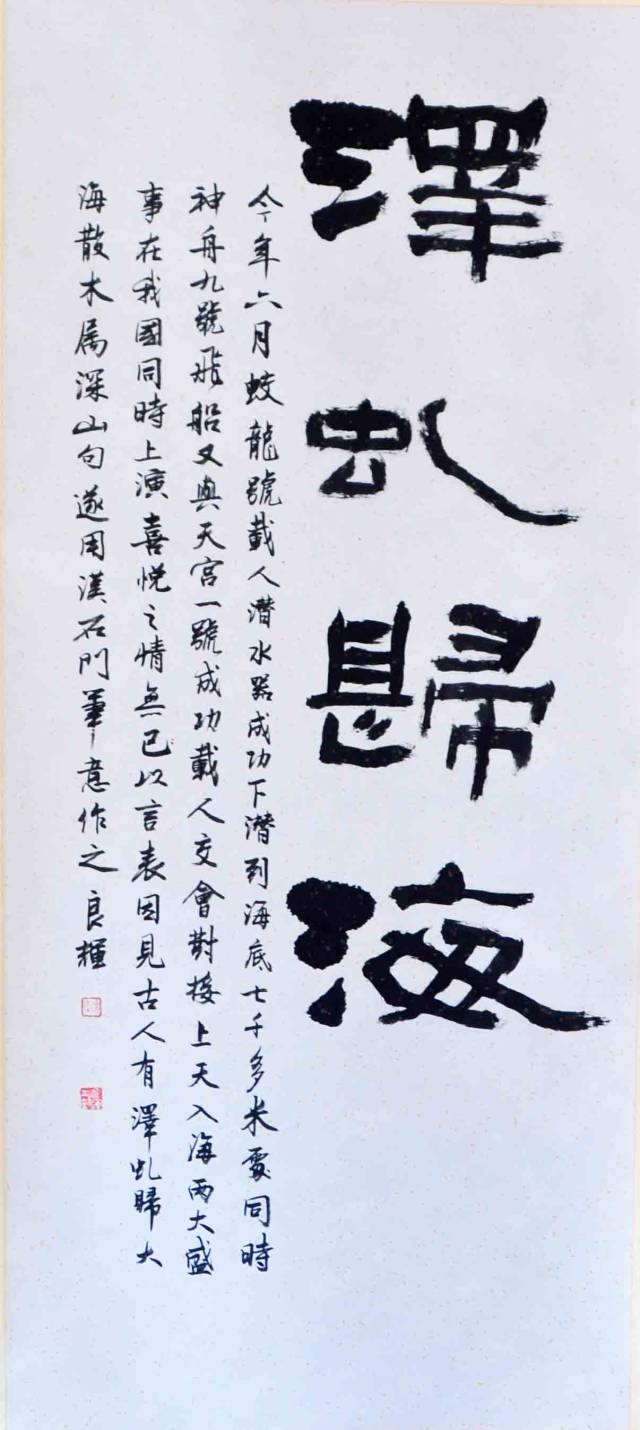 澤虬歸海
今年六月蛟龍號載人潛水器成功下潛到海底七千多米處同時
神舟九號飛船又與天宮一號成功載人交會對接上天入海兩大盛
事在我國同時上演喜悅之情無已以言表因見古人有澤虬歸大
海散木属深山句遂用漢石門筆意作之良輝